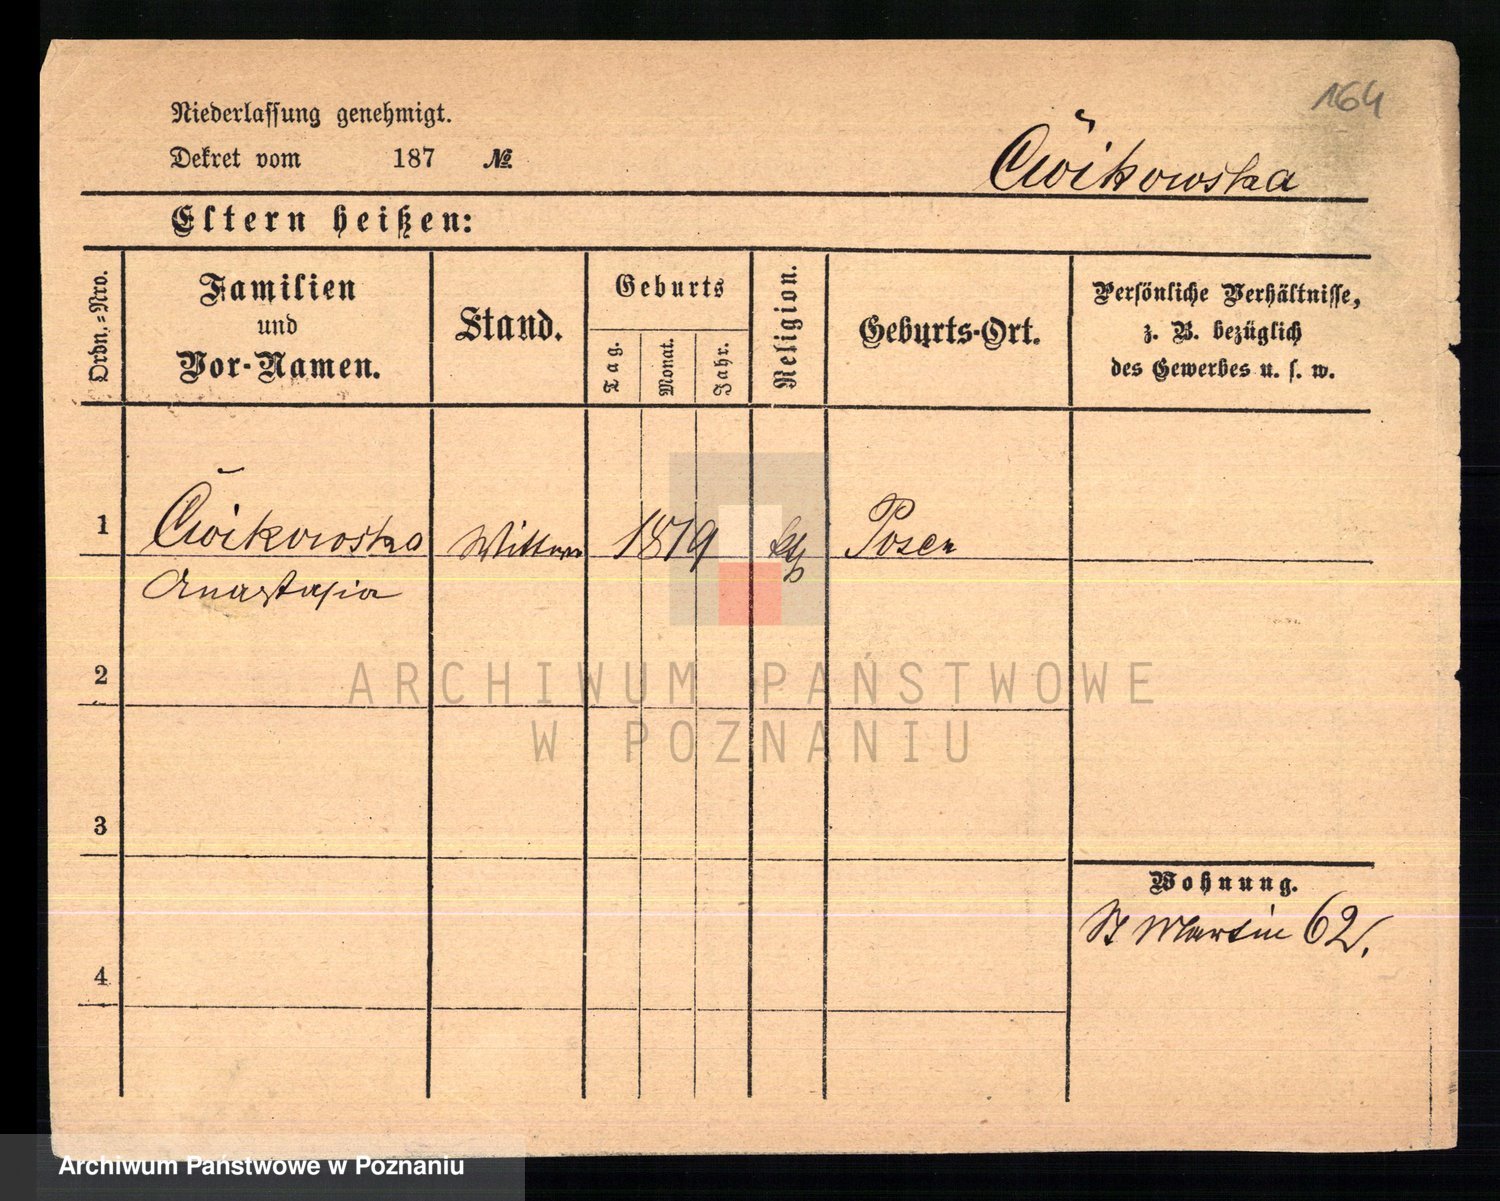 164
Niederlassung genehmigt.
Dekret vom 187 №
Cwikowska
Eltern heißen:
Ordn.-Nro.
Familien
und
Vor-Namen.
Stand.
Geburts
Tag.
Monat.
Jahr.
Religion.
Geburts-Ort.
Persönliche Verhältnisse,
z. B. bezüglich
des Gewerbes u. s. w.
1 Cwikowska Wittwe 1819 kth Posen
Anastasia
2
3
4
Wohnung.
St Martin 62.
ARCHIWUM PAŃSTWOWE
W POZNANIU
Archiwum Państwowe w Poznaniu